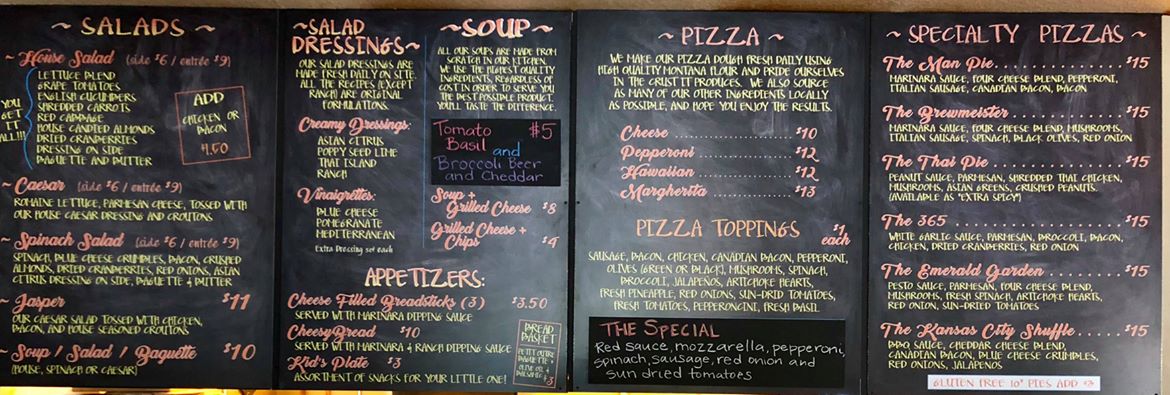 ~ SALADS ~
~ House Salad (side $6 / entrée $9)
LETTUCE BLEND
GRAPE TOMATOES
ENGLISH CUCUMBERS
SHREDDED CARROTS
RED CABBAGE
HOUSE CANDIED ALMONDS
DRIED CRANBERRIES
DRESSING ON SIDE
BAGUETTE AND BUTTER
YOU
GET
IT
ALL!!!
ADD
CHICKEN OR
BACON
$1.50
~ Caesar (side $6 / entrée $9)
ROMAINE LETTUCE, PARMESAN CHEESE, TOSSED WITH
OUR HOUSE CAESAR DRESSING AND CROUTONS
~ Spinach Salad (side $6 / entrée $9)
SPINACH, BLUE CHEESE CRUMBLES, BACON, CRUSHED
ALMONDS, DRIED CRANBERRIES, RED ONIONS, ASIAN
CITRUS DRESSING ON SIDE, BAGUETTE & BUTTER
~ Jasper $11
OUR CAESAR SALAD TOSSED WITH CHICKEN,
BACON, AND HOUSE SEASONED CROUTONS
~ Soup / Salad / Baguette $10
(HOUSE, SPINACH OR CAESAR)
~SALAD
DRESSINGS~
OUR SALAD DRESSINGS ARE
MADE FRESH DAILY ON SITE.
ALL THE RECIPES (EXCEPT
RANCH) ARE ORIGINAL
FORMULATIONS.
Creamy Dressings:
ASIAN CITRUS
POPPY SEED LIME
THAI ISLAND
RANCH
Vinaigrettes:
BLUE CHEESE
POMEGRANATE
MEDITERRANEAN
Extra Dressing 50¢ each
~SOUP~
ALL OUR SOUPS ARE MADE FROM
SCRATCH IN OUR KITCHEN.
WE USE THE HIGHEST QUALITY
INGREDIENTS, REGARDLESS OF
COST IN ORDER TO SERVE YOU
THE BEST POSSIBLE PRODUCT.
YOU'LL TASTE THE DIFFERENCE.
Tomato $5
Basil and
Broccoli Beer
and Cheddar
Soup +
Grilled Cheese $8
Grilled Cheese +
Chips $4
APPETIZERS:
Cheese Filled Breadsticks (3) $3.50
SERVED WITH MARINARA DIPPING SAUCE
CheesyBread $10
SERVED WITH MARINARA & RANCH DIPPING SAUCE
Kid's Plate $3
ASSORTMENT OF SNACKS FOR YOUR LITTLE ONE!
BREAD
BASKET
BAGUETTE +
OLIVE OIL &
BALSAMIC $3
~ PIZZA ~
WE MAKE OUR PIZZA DOUGH FRESH DAILY USING
HIGH QUALITY MONTANA FLOUR AND PRIDE OURSELVES
IN THE CRUST IT PRODUCES. WE ALSO SOURCE
AS MANY OF OUR OTHER INGREDIENTS LOCALLY
AS POSSIBLE, AND HOPE YOU ENJOY THE RESULTS.
Cheese .................... $10
Pepperoni ................ $12
Hawaiian ................. $12
Margherita .............. $13
PIZZA TOPPINGS $1
each
SAUSAGE, BACON, CHICKEN, CANADIAN BACON, PEPPERONI,
OLIVES (GREEN OR BLACK), MUSHROOMS, SPINACH,
BROCCOLI, JALAPEÑOS, ARTICHOKE HEARTS,
FRESH PINEAPPLE, RED ONIONS, SUN-DRIED TOMATOES,
FRESH TOMATOES, PEPPERONCINI, FRESH BASIL
THE SPECIAL
Red sauce, mozzarella, pepperoni,
spinach, sausage, red onion and
sun dried tomatoes
~ SPECIALTY PIZZAS ~
The Man Pie................. $15
MARINARA SAUCE, FOUR CHEESE BLEND, PEPPERONI,
ITALIAN SAUSAGE, CANADIAN BACON, BACON
The Brewmeister ............ $15
MARINARA SAUCE, FOUR CHEESE BLEND, MUSHROOMS,
ITALIAN SAUSAGE, SPINACH, BLACK OLIVES, RED ONION
The Thai Pie ................ $15
PEANUT SAUCE, PARMESAN, SHREDDED THAI CHICKEN,
MUSHROOMS, ASIAN GREENS, CRUSHED PEANUTS.
(AVAILABLE AS "EXTRA SPICY")
The 365 ..................... $15
WHITE GARLIC SAUCE, PARMESAN, BROCCOLI, BACON,
CHICKEN, DRIED CRANBERRIES, RED ONION
The Emerald Garden ......... $15
PESTO SAUCE, PARMESAN, FOUR CHEESE BLEND,
MUSHROOMS, FRESH SPINACH, ARTICHOKE HEARTS,
RED ONION, SUN-DRIED TOMATOES
The Kansas City Shuffle.... $15
BBQ SAUCE, CHEDDAR CHEESE BLEND,
CANADIAN BACON, BLUE CHEESE CRUMBLES,
RED ONIONS, JALAPEÑOS
GLUTEN FREE 10" PIES ADD $3